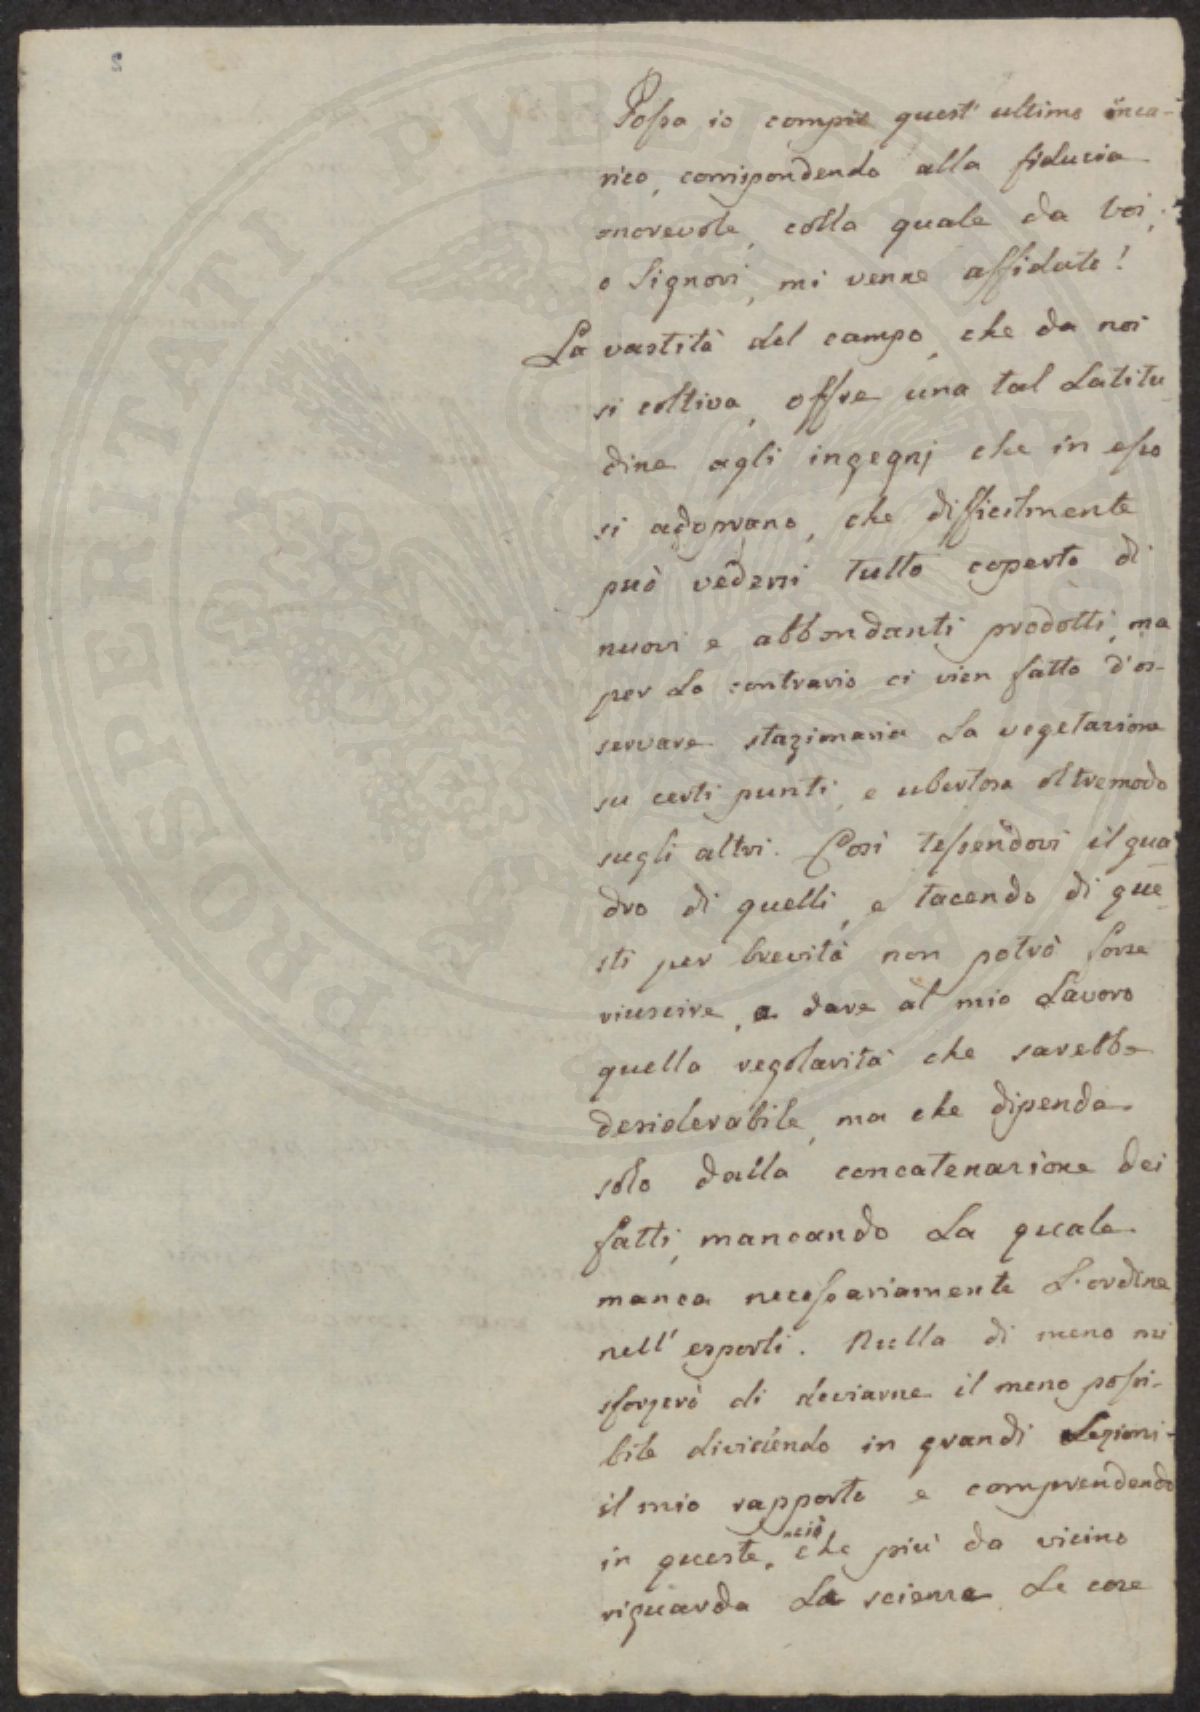 2
Possa io compire quest' ultimo inca-
rico, corrispondendo alla fiducia
onorevole, colla quale da Voi,
o Signori, mi venne affidato!
La vastità del campo, che da noi
si coltiva, offre una tal latitu-
dine agli ingegnj che in esso
si adoprano, che difficilmente
può vedersi tutto coperto di
nuovi e abbondanti prodotti, ma
per lo contrario ci vien fatto d'os-
servare stazionaria la vegetazione
su certi punti, e ubertosa oltremodo
sugli altri. Così tessendovi il qua
dro di quelli, e tacendo di que-
sti per brevità non potrò forse
riuscire, a dare al mio lavoro
quella regolarità che sarebbe
desiderabile, ma che dipende
solo dalla concatenazione dei
fatti, mancando la quale
manca necessariamente l'ordine
nell' esporli. Nulla di meno mi
sforzerò di deviarne il meno possi-
bile dividendo in grandi Sezioni
il mio rapporto e comprendendo
in queste, ciò che più da vicino
riguarda la scienza le cose
PROSPERITATI PVBLICAE